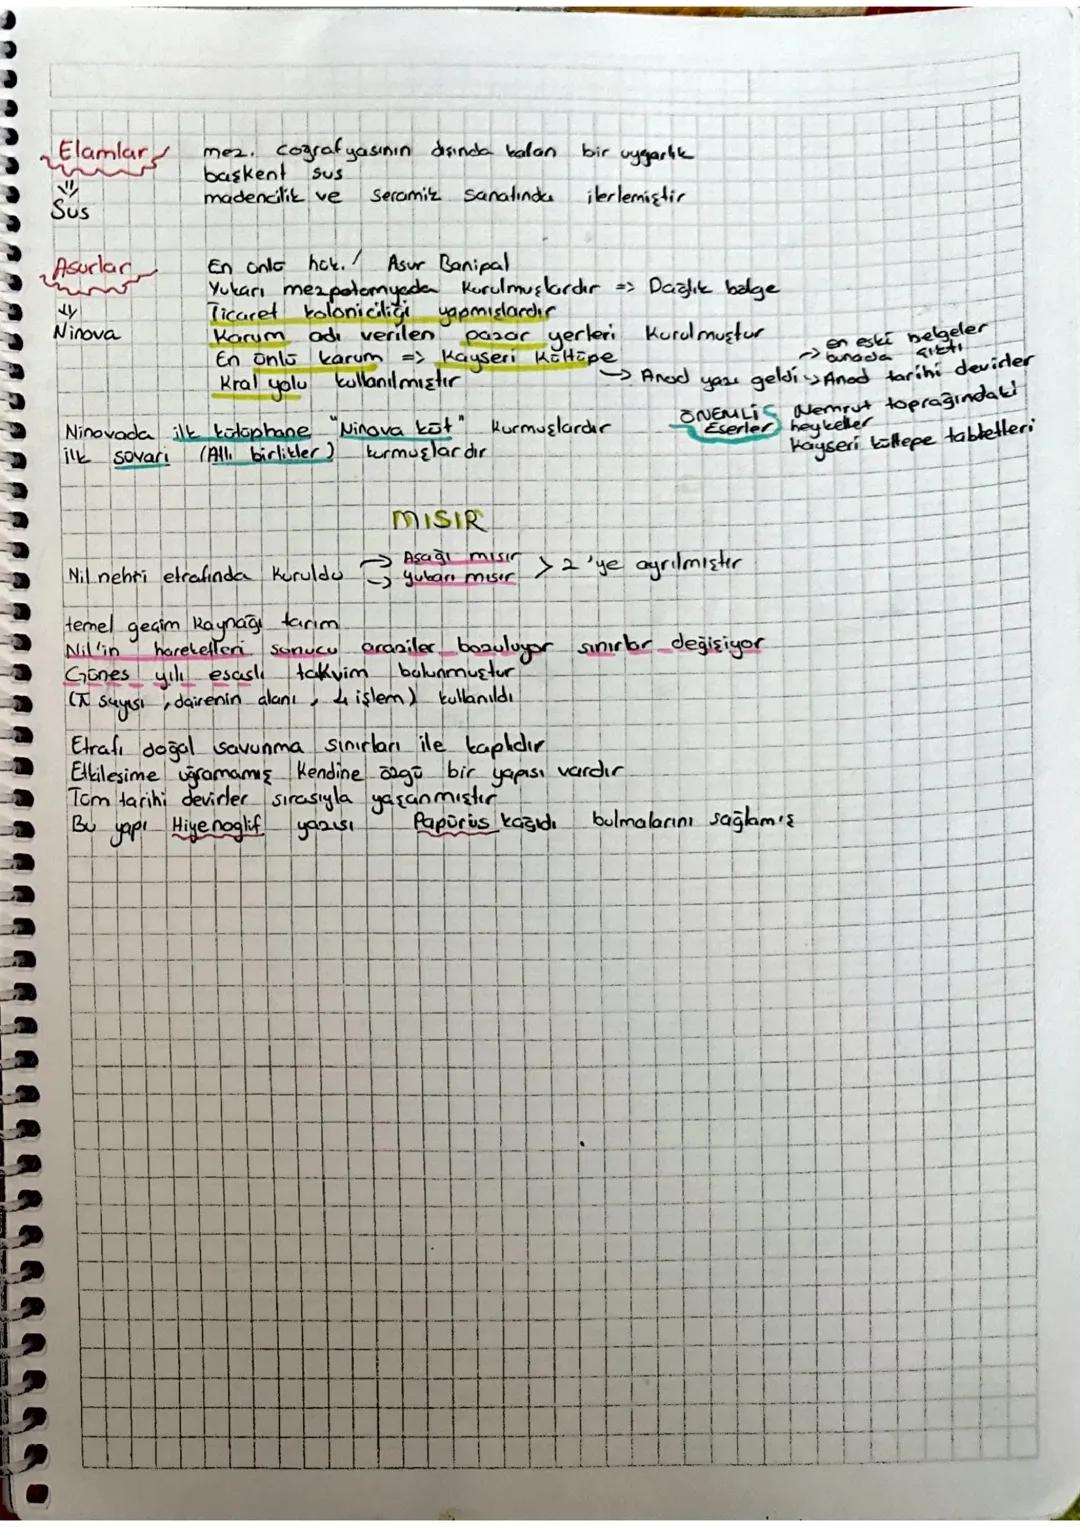 Elamlar mez. coğrafyasının dışında kalan bir uygarlık
başkent sus
⇓
Sus madencilik ve seramik sanatında ilerlemiştir
Asurlar En ünlü hük.! Asur Banipal
Yukarı mezpotamyada kurulmuşlardır => Dağlık bölge
⇓ Ticaret koloniciliği yapmışlardır
Ninova Karum adı verilen pazar yerleri kurulmuştur
En ünlü karum => Kayseri Kültepe
→ Anad yazı geldi → Anad tarihi devirler
→ en eski belgeler
burada çıktı
Kral yolu kullanılmıştır
Ninovada ilk kütüphane "Ninova küt" kurmuşlardır
ilk süvari (Atlı birlikler) kurmuşlardır
ÖNEMLİ Eserler
Nemrut toprağındaki
heykeller
Kayseri kültepe tabletleri
MISIR
Nil nehri etrafında kuruldu → Aşağı mısır
→ yukarı mısır > 2'ye ayrılmıştır
temel geçim kaynağı tarım
Nil'in hareketleri sonucu araziler bozuluyor sınırlar değişiyor
Güneş yılı esaslı takvim bulunmuştur
(π sayısı, dairenin alanı, 4 işlem) kullanıldı
Etrafı doğal savunma sınırları ile kaplıdır
Etkileşime uğramamış kendine özgü bir yapısı vardır
Tüm tarihi devirler sırasıyla yaşanmıştır
Bu yapı Hiyenoglif yazısı Papürüs kağıdı bulmalarını sağlamış